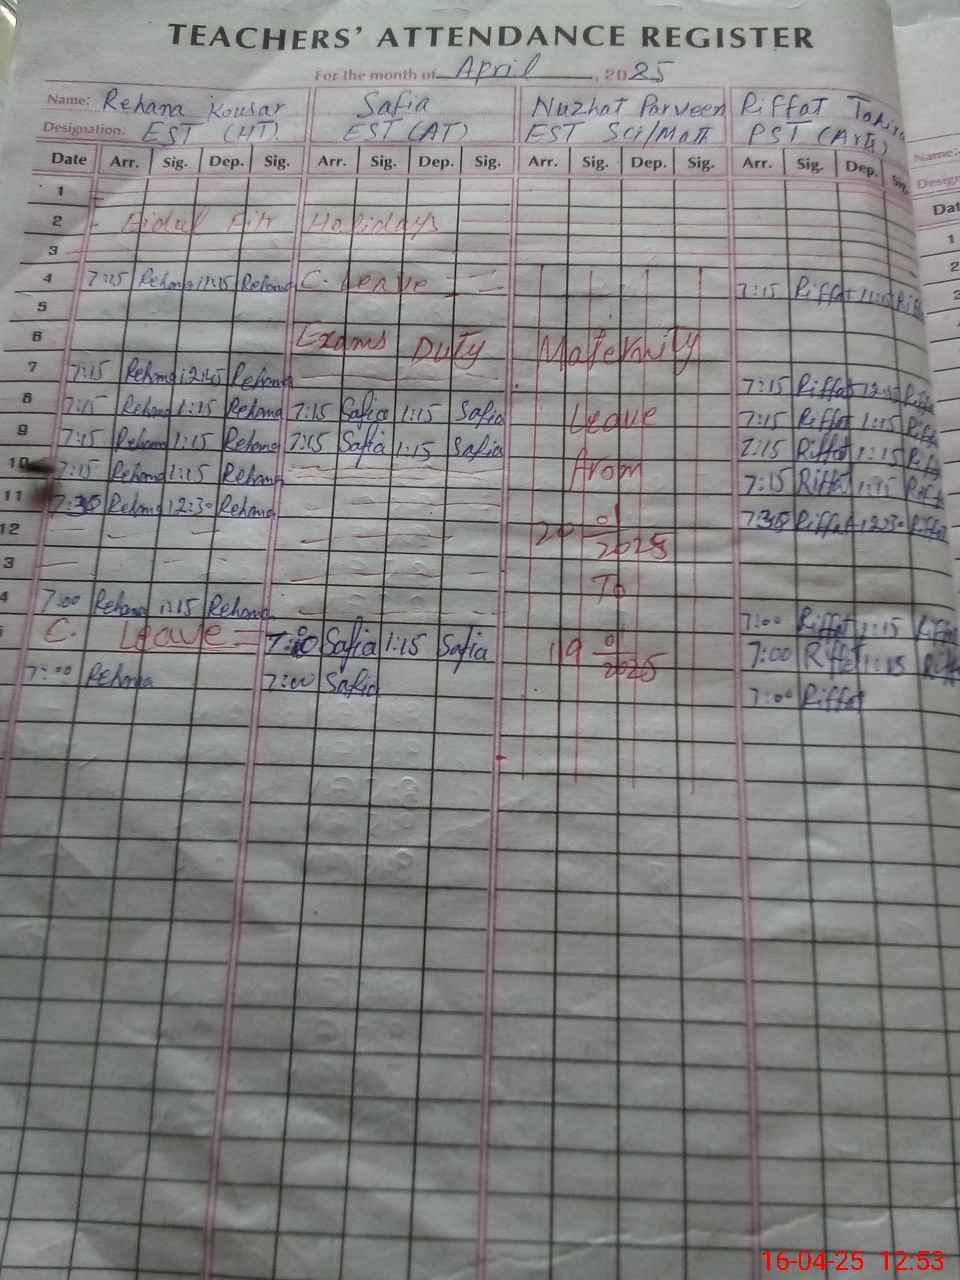 TEACHERS' ATTENDANCE REGISTER
For the month of April, 2025
Name: Rehana Kousar Safia Nuzhat Parveen Riffat Tahira
Designation. EST (HT) EST (AT) EST Sci/Math PST (Arts)
Date Arr. Sig. Dep. Sig. Arr. Sig. Dep. Sig. Arr. Sig. Dep. Sig. Arr. Sig. Dep. Sig.
1
2 Eidul Fitr Holidays
3
4 7:15 Rehana 11:15 Rehana C. Leave 7:15 Riffat
5
6 Exams Duty Maternity
7 7:15 Rehana 12:45 Rehana 7:15 Riffat 12:45 Riffat
8 7:15 Rehana 1:15 Rehana 7:15 Safia 1:15 Safia Leave 7:15 Riffat 1:15 Riffat
9 7:15 Rehana 1:15 Rehana 7:15 Safia 1:15 Safia 7:15 Riffat 1:15 Riffat
10 7:15 Rehana 1:15 Rehana From 7:15 Riffat 1:15 Riffat
11 7:30 Rehana 12:30 Rehana 7:30 Riffat 12:30 Riffat
12 20 01/2025
3 To
4 7:00 Rehana 1:15 Rehana 7:00 Riffat 1:15 Riffat
C. Leave 7:00 Safia 1:15 Safia 19 2025 7:00 Riffat 1:15 Riffat
7:00 Rehana 7:00 Safia 7:00 Riffat
Name:
Dat
1
2
3
16-04-25 12:53